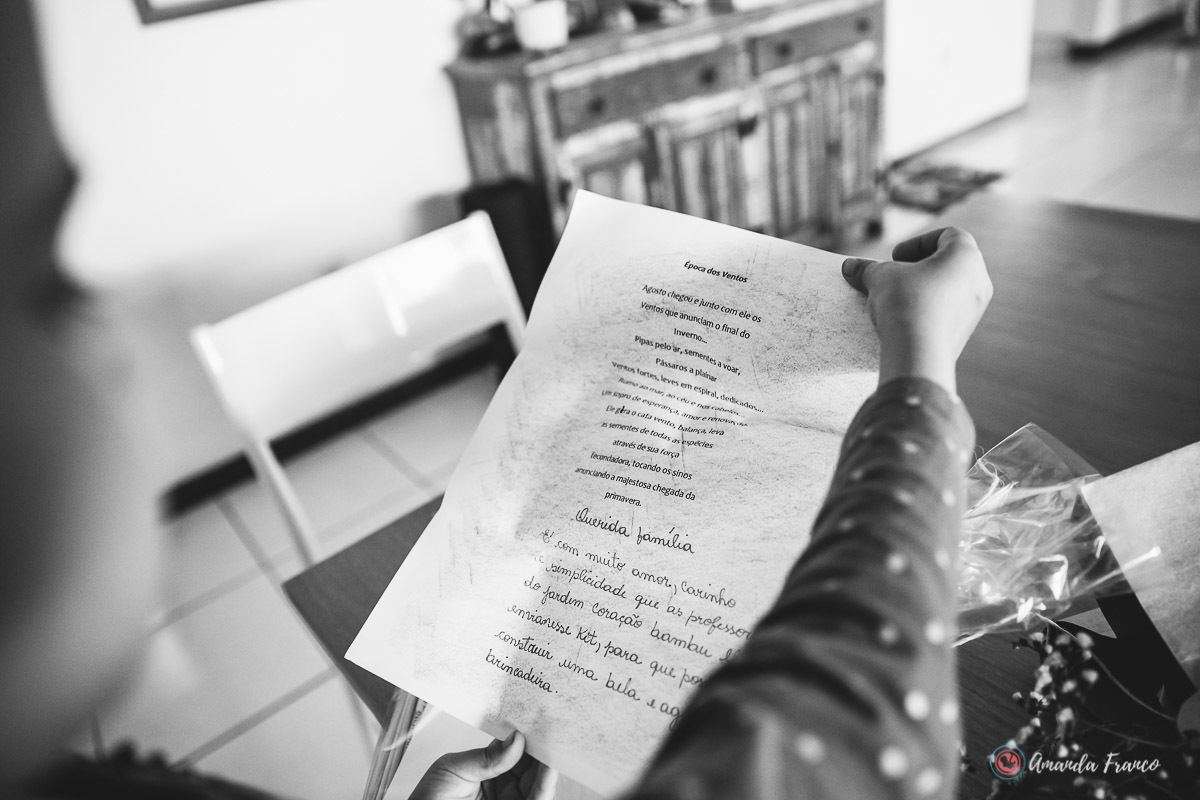 Época dos Ventos
Agosto chegou e junto com ele os
Ventos que anunciam o final do
Inverno...
Pipas pelo ar, sementes a voar,
Pássaros a plainar
Ventos fortes, leves em espiral, dedicados...
Rumo ao mar, ao céu e nos cabelos...
Um sopro de esperança, amor e renovação
Ele gira o cata vento, balança, leva
as sementes de todas as espécies
através de sua força
fecundadora, tocando os sinos
anunciando a majestosa chegada da
primavera.
Querida família
É com muito amor, carinho
e simplicidade que as professor
do jardim coração bambu
enviam esse Kit, para que
construir uma bela e
brincadeira.
Amanda Franco